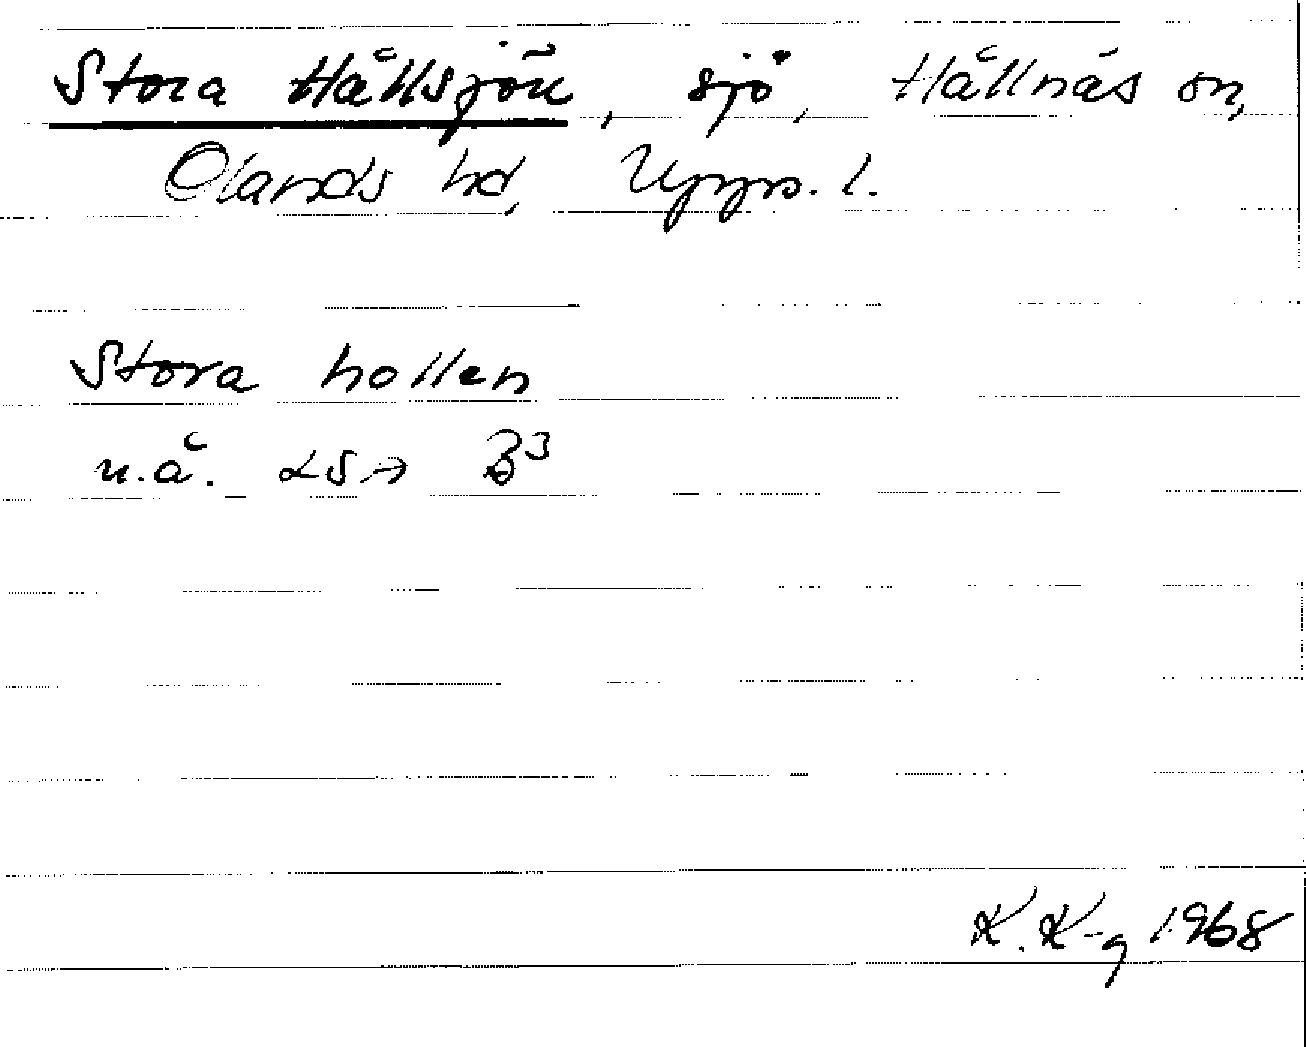 Stora Hållsjön, sjö, Hållnäs sn,
Olands hd, Upps. l.
Stora hollen
n.å. LS → B³
K. K-g 1968